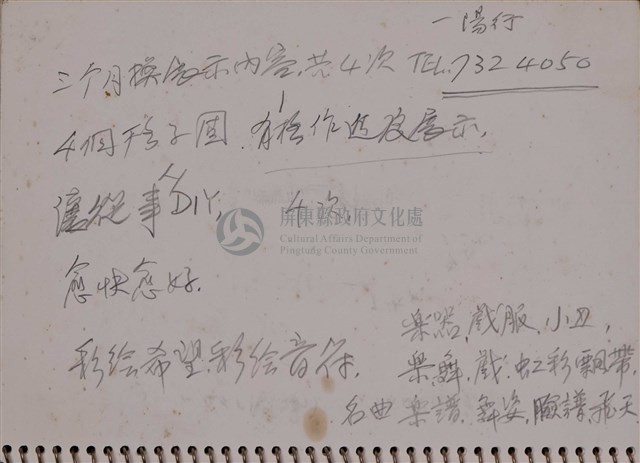 一陽行
三个月換展示內容,共4次 TEL.7324050
4個 子圓.有 作 及展示,
讓從事DIY, 4次,
愈快愈好.
彩绘希望.彩绘音符.
楽器.戲服.小丑,
楽舞.戲.虹彩飄帶,
名曲楽譜.舞姿.臉譜.飛天
屏東縣政府文化處
Cultural Affairs Department of
Pingtung County Government